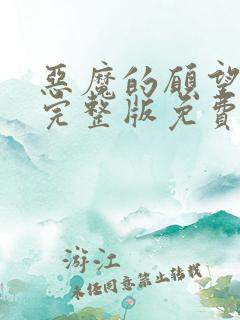 惡魔的願望
完整版免費
游江
未经同意禁止转载